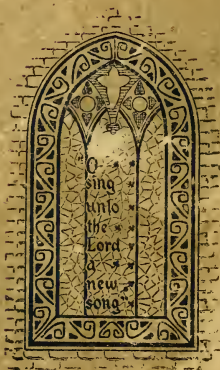 "O
sing
unto
the
Lord
a
new
song"